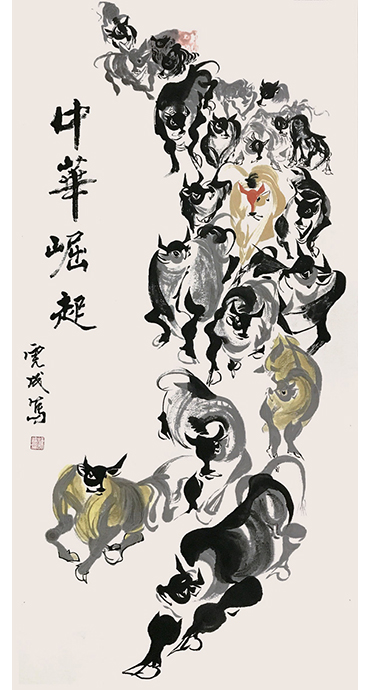 中華崛起
成寫